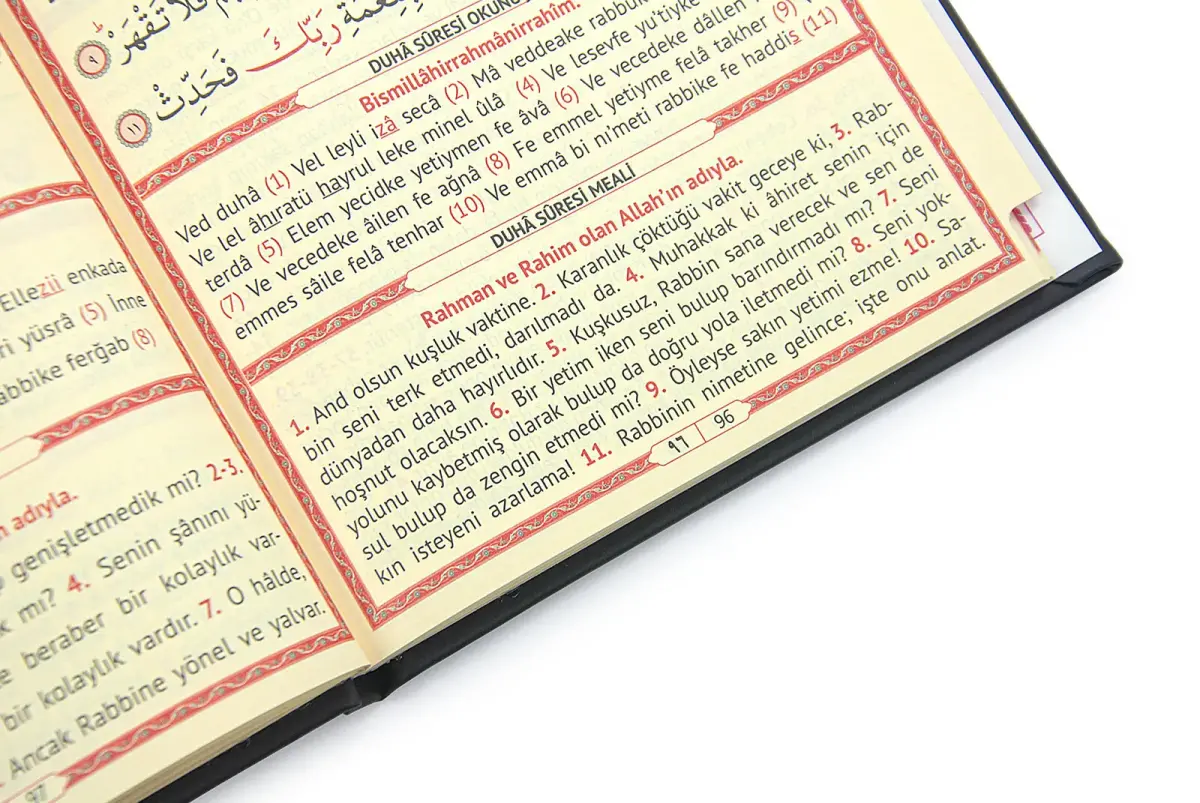 فَلَا تَقْهَرْ ٩
رَبِّكَ فَحَدِّثْ ١١
DUHÂ SÛRESİ
Bismillâhirrahmânirrahîm.
Ved duhâ (1) Vel leyli izâ secâ (2) Mâ veddeake rabbuke
Ve lel âhıratü hayrul leke minel ûlâ (4) Ve lesevfe yu'tiyke
terdâ (5) Elem yecidke yetiymen fe âvâ (6) Ve vecedeke dâllen
(7) Ve vecedeke âilen fe ağnâ (8) Fe emmel yetiyme felâ takher (9)
emmes sâile felâ tenhar (10) Ve emmâ bi ni'meti rabbike fe haddis (11)
DUHÂ SÛRESİ MEALİ
Rahman ve Rahim olan Allah'ın adıyla.
1. And olsun kuşluk vaktine. 2. Karanlık çöktüğü vakit geceye ki, 3. Rab-
bin seni terk etmedi, darılmadı da. 4. Muhakkak ki âhiret senin için
dünyadan daha hayırlıdır. 5. Kuşkusuz, Rabbin sana verecek ve sen de
hoşnut olacaksın. 6. Bir yetim iken seni bulup barındırmadı mı? 7. Seni
yolunu kaybetmiş olarak bulup da doğru yola iletmedi mi? 8. Seni yok-
sul bulup da zengin etmedi mi? 9. Öyleyse sakın yetimi ezme! 10. Sa-
kın isteyeni azarlama! 11. Rabbinin nimetine gelince; işte onu anlat.
٩٦ | 96
Ellezii enkada
yüsrâ (5) İnne
rabbike ferğab (8)
adıyla.
genişletmedik mi? 2-3.
mı? 4. Senin şânını yü-
beraber bir kolaylık var-
bir kolaylık vardır. 7. O hâlde,
Ancak Rabbine yönel ve yalvar.
97